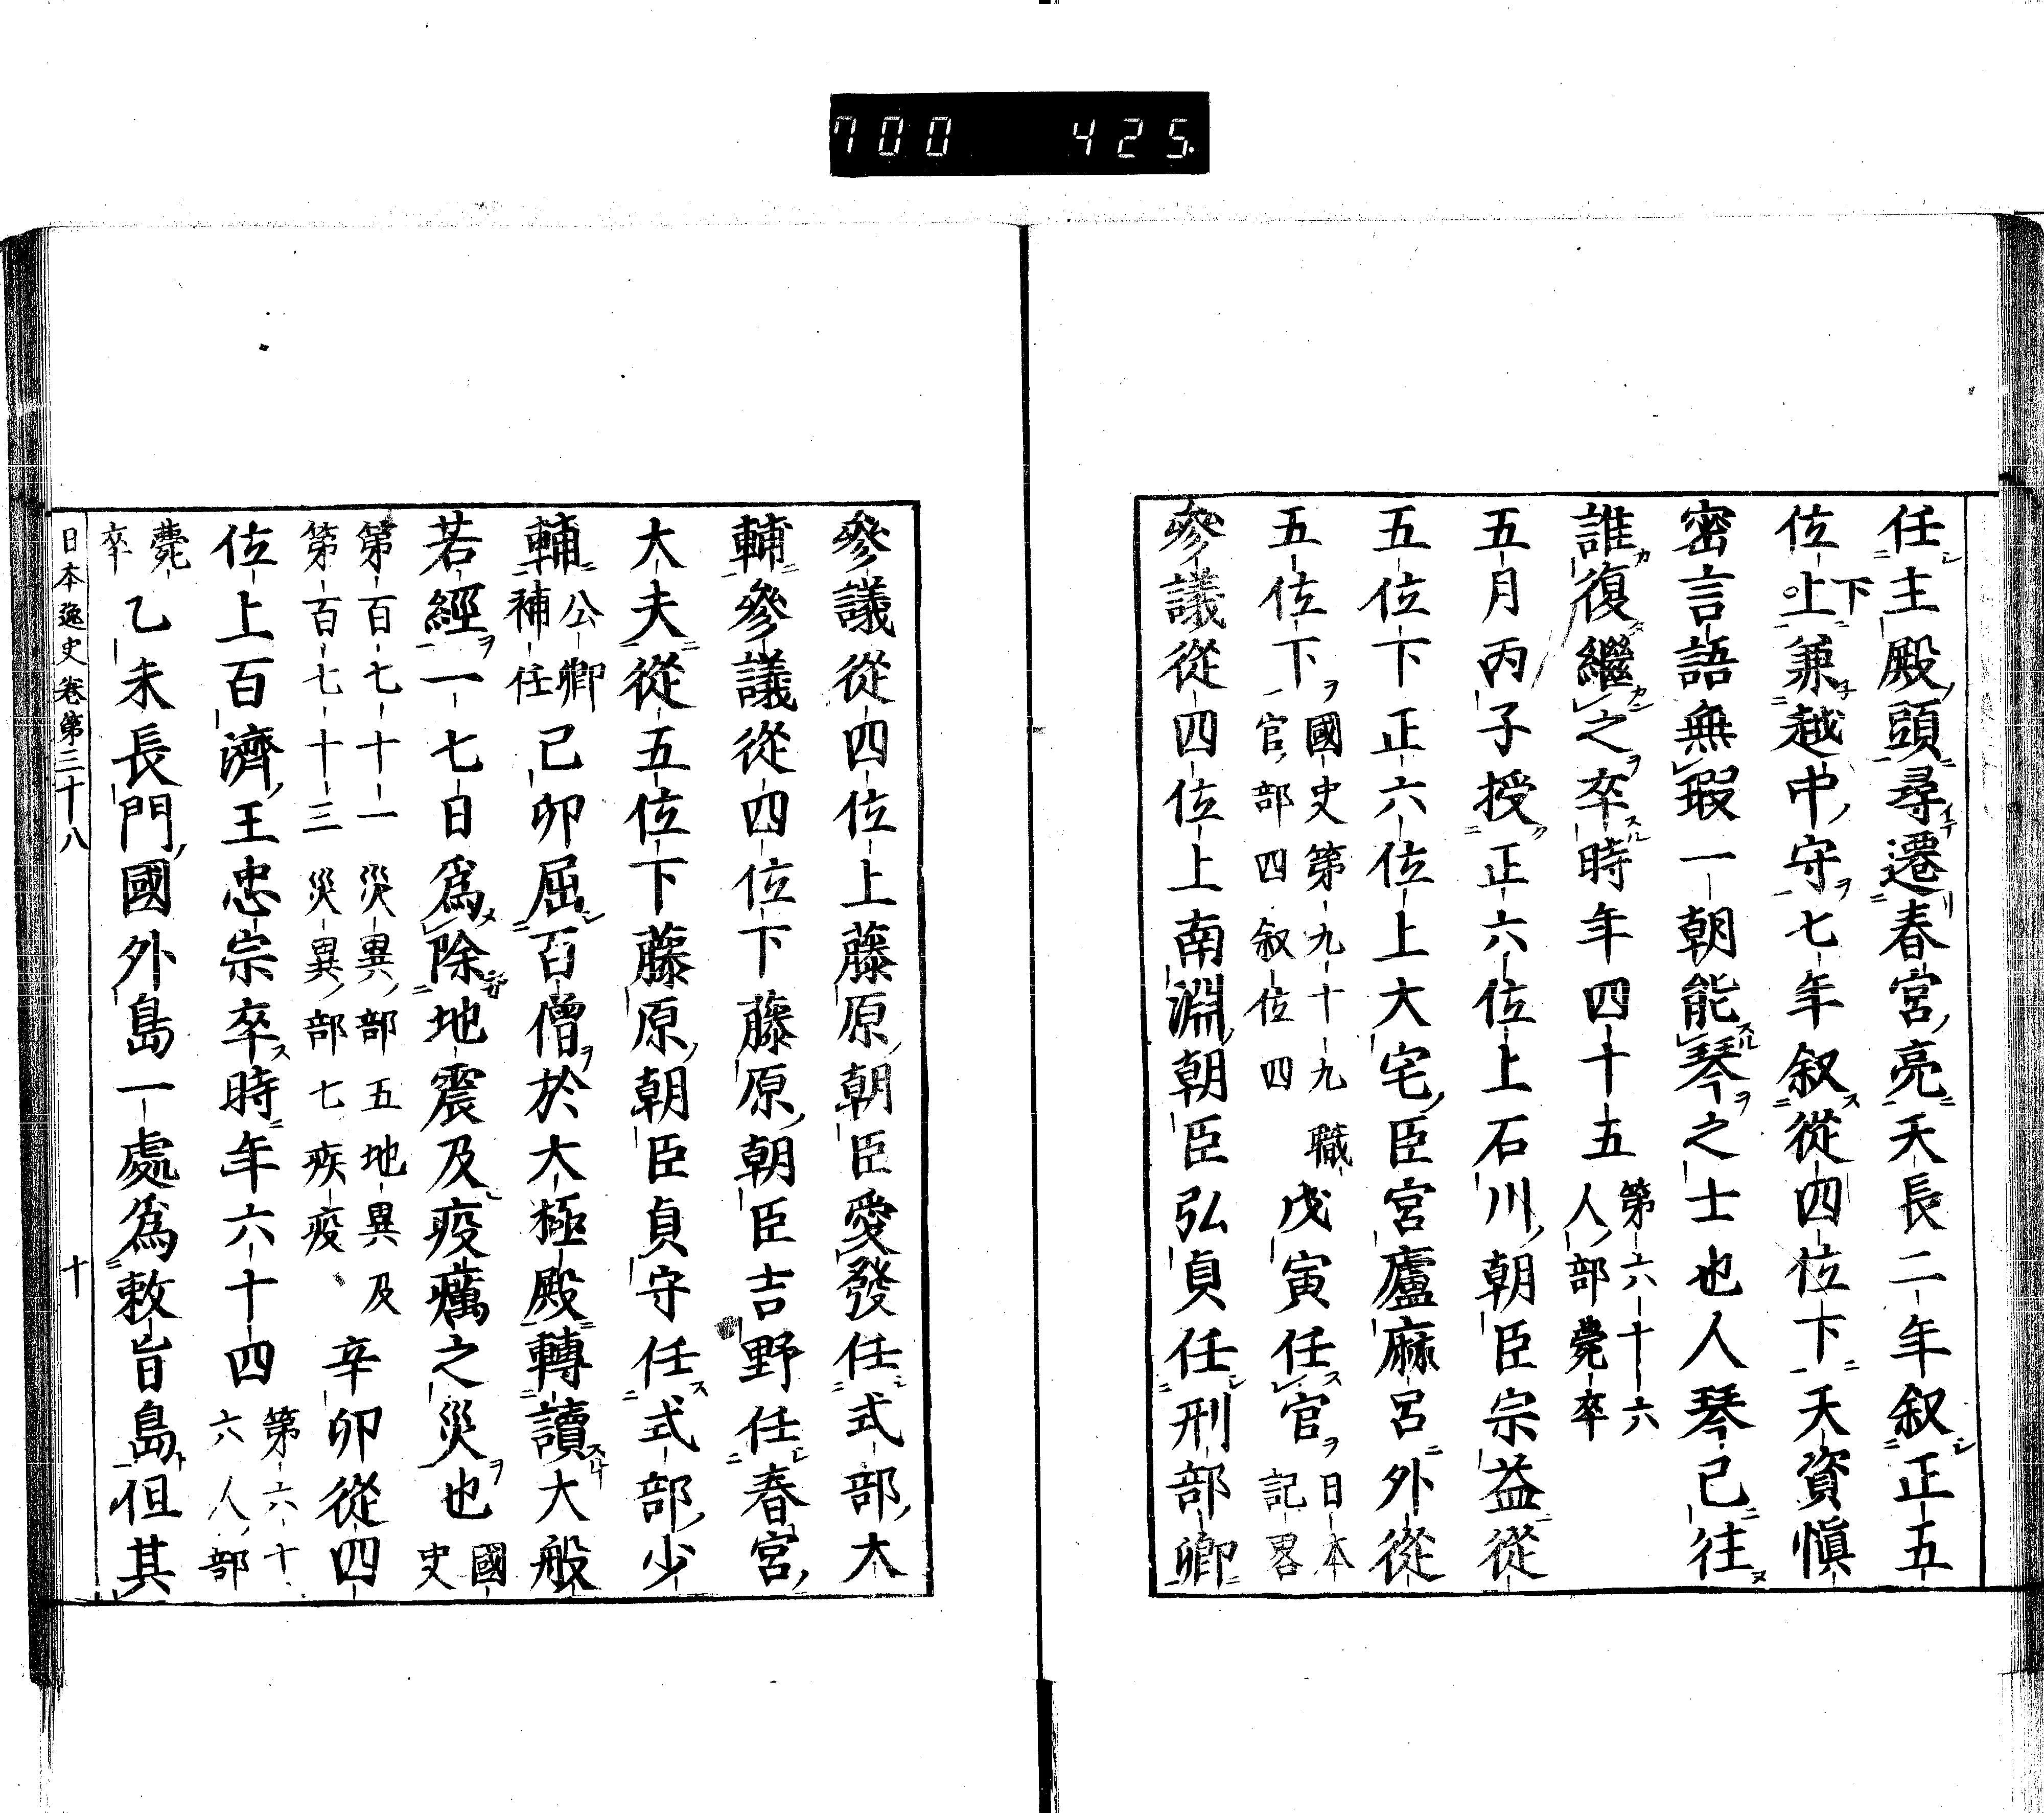 700 425
任主殿頭尋遷春宮亮天長二年叙正五
位上下兼越中守七年叙從四位下天資愼
密言語無瑕一朝能琴之士也人琴已往
誰復繼之卒時年四十五第六十六人部薨卒
五月丙子授正六位上石川朝臣宗益從
五位下正六位上大宅臣宮廬麻呂外從
五位下國史第九十九職官部四叙位四戊寅任官日本記畧
參議從四位上南淵朝臣弘貞任刑部卿
參議從四位上藤原朝臣愛發任式部大
輔參議從四位下藤原朝臣吉野任春宮
大夫從五位下藤原朝臣貞守任式部少
輔公卿補任己卯屈百僧於大極殿轉讀大般
若經一七日爲除地震及疫癘之災也國史
第百七十一災異部五地異及第百七十三災異部七疾疫辛卯從四
位上百濟王忠宗卒時年六十四第六十六人部
薨卒乙未長門國外島一處爲敕旨島但其
日本逸史卷第三十八 十